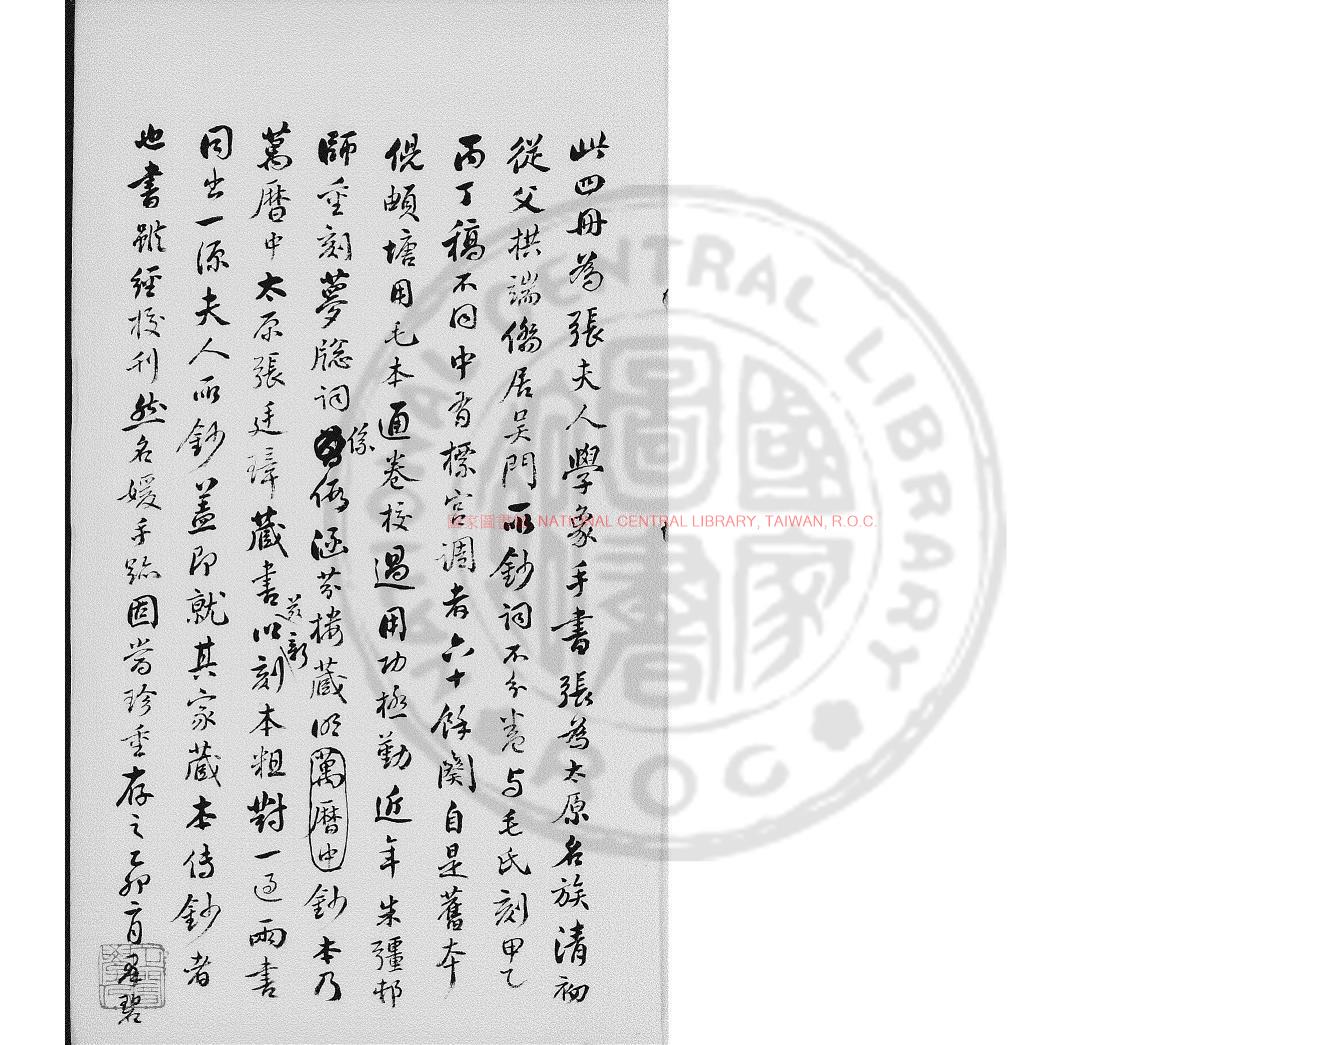 此四冊為張夫人學象手書張為太原名族清初
從父拱端僑居吳門所鈔詞不分卷与毛氏刻甲乙
丙丁稿不同中有標宮調者六十餘闋自是舊本
倪頔塘用毛本通卷校過用功極勤近年朱彊邨
師重刻夢牕詞係假涵芬樓藏明萬曆中鈔本乃
萬曆中太原張廷璋藏書茲以新刻本粗對一過兩書
同出一源夫人所鈔蓋即就其家藏本傳鈔者
也書雖經校刊然名媛手跡固當珍重存之乙卯有羣碧
國家圖書館 NATIONAL CENTRAL LIBRARY, TAIWAN, R.O.C.
NATIONAL CENTRAL LIBRARY
ROC
國家圖書館